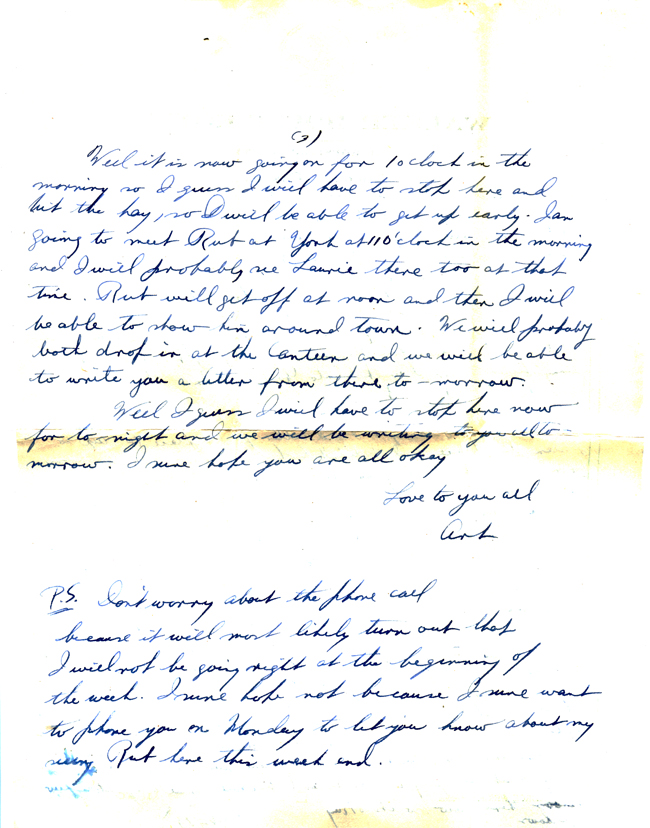 (3)
Well it is now going on for 1 oclock in the
morning so I guess I will have to stop here and
hit the hay, so I will be able to get up early. I am
going to meet Rut at York at 11 O'clock in the morning
and I will probably see Laurie there too at that
time. Rut will get off at noon and then I will
be able to show him around town. We will probably
both drop in at the Canteen and we will be able
to write you a letter from there to-morrow.
Well I guess I will have to stop here now
for to-night and we will be writing to you all to-
morrow. I sure hope you are all okay
Love to you all
Art
P.S. Don't worry about the phone call
because it will most likely turn out that
I will not be going right at the beginning of
the week. I sure hope not because I sure want
to phone you on Monday to let you know about my
seeing Rut here this week end.